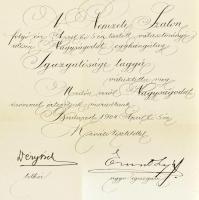 A Nemzeti Szalon
folyó évi April hó 5-én tartott választmányi
ülésén Nagyságodat egyhangúlag
Igazgatósága tagjá
választotta meg
Midőn erről Nagyságodat
értesíteni maradtunk
Budapest 1904 April 5-én
Kiváló tisztelettel
titkár
ügyv. igazgató